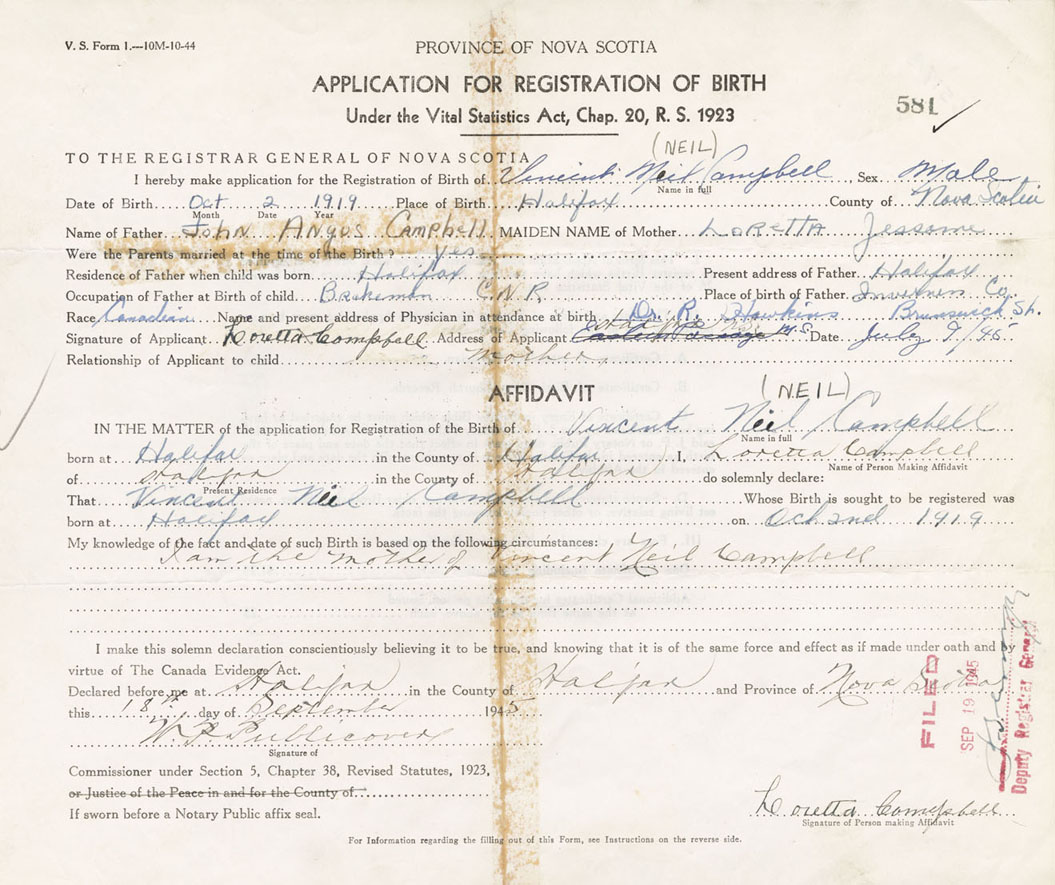 V. S. Form 1.—10M-10-44
PROVINCE OF NOVA SCOTIA
APPLICATION FOR REGISTRATION OF BIRTH
581
Under the Vital Statistics Act, Chap. 20, R. S. 1923
(NEIL)
TO THE REGISTRAR GENERAL OF NOVA SCOTIA
I hereby make application for the Registration of Birth of Vincent Neil Campbell, Sex Male
Name in full
Date of Birth Oct 2 1919 Place of Birth Halifax County of Nova Scotia
Month Date Year
Name of Father John Angus Campbell MAIDEN NAME of Mother LORETTA Jessome
Were the Parents married at the time of the Birth? yes
Residence of Father when child was born Halifax Present address of Father Halifax
Occupation of Father at Birth of child Brakeman C.N.R. Place of birth of Father Inverness Co.
Race Canadian Name and present address of Physician in attendance at birth Dr. R. Hawkins Brunswick St.
Signature of Applicant Loretta Campbell Address of Applicant Halifax N.S. Date July 9/45
Relationship of Applicant to child mother
AFFIDAVIT
(NEIL)
IN THE MATTER of the application for Registration of the Birth of Vincent Neil Campbell
Name in full
born at Halifax in the County of Halifax I, Loretta Campbell
Name of Person Making Affidavit
of Halifax in the County of Halifax do solemnly declare:
Present Residence
That Vincent Neil Campbell Whose Birth is sought to be registered was
born at Halifax on Oct 2nd 1919
My knowledge of the fact and date of such Birth is based on the following circumstances:
I am the mother of Vincent Neil Campbell
I make this solemn declaration conscientiously believing it to be true, and knowing that it is of the same force and effect as if made under oath and by
virtue of The Canada Evidence Act.
Declared before me at Halifax in the County of Halifax and Province of Nova Scotia
this 18th day of September 1945
W. Publicover
Signature of
Commissioner under Section 5, Chapter 38, Revised Statutes, 1923,
or Justice of the Peace in and for the County of
If sworn before a Notary Public affix seal.
Loretta Campbell
Signature of Person making Affidavit
FILED
SEP 19 1945
Deputy Registrar General
For Information regarding the filling out of this Form, see Instructions on the reverse side.